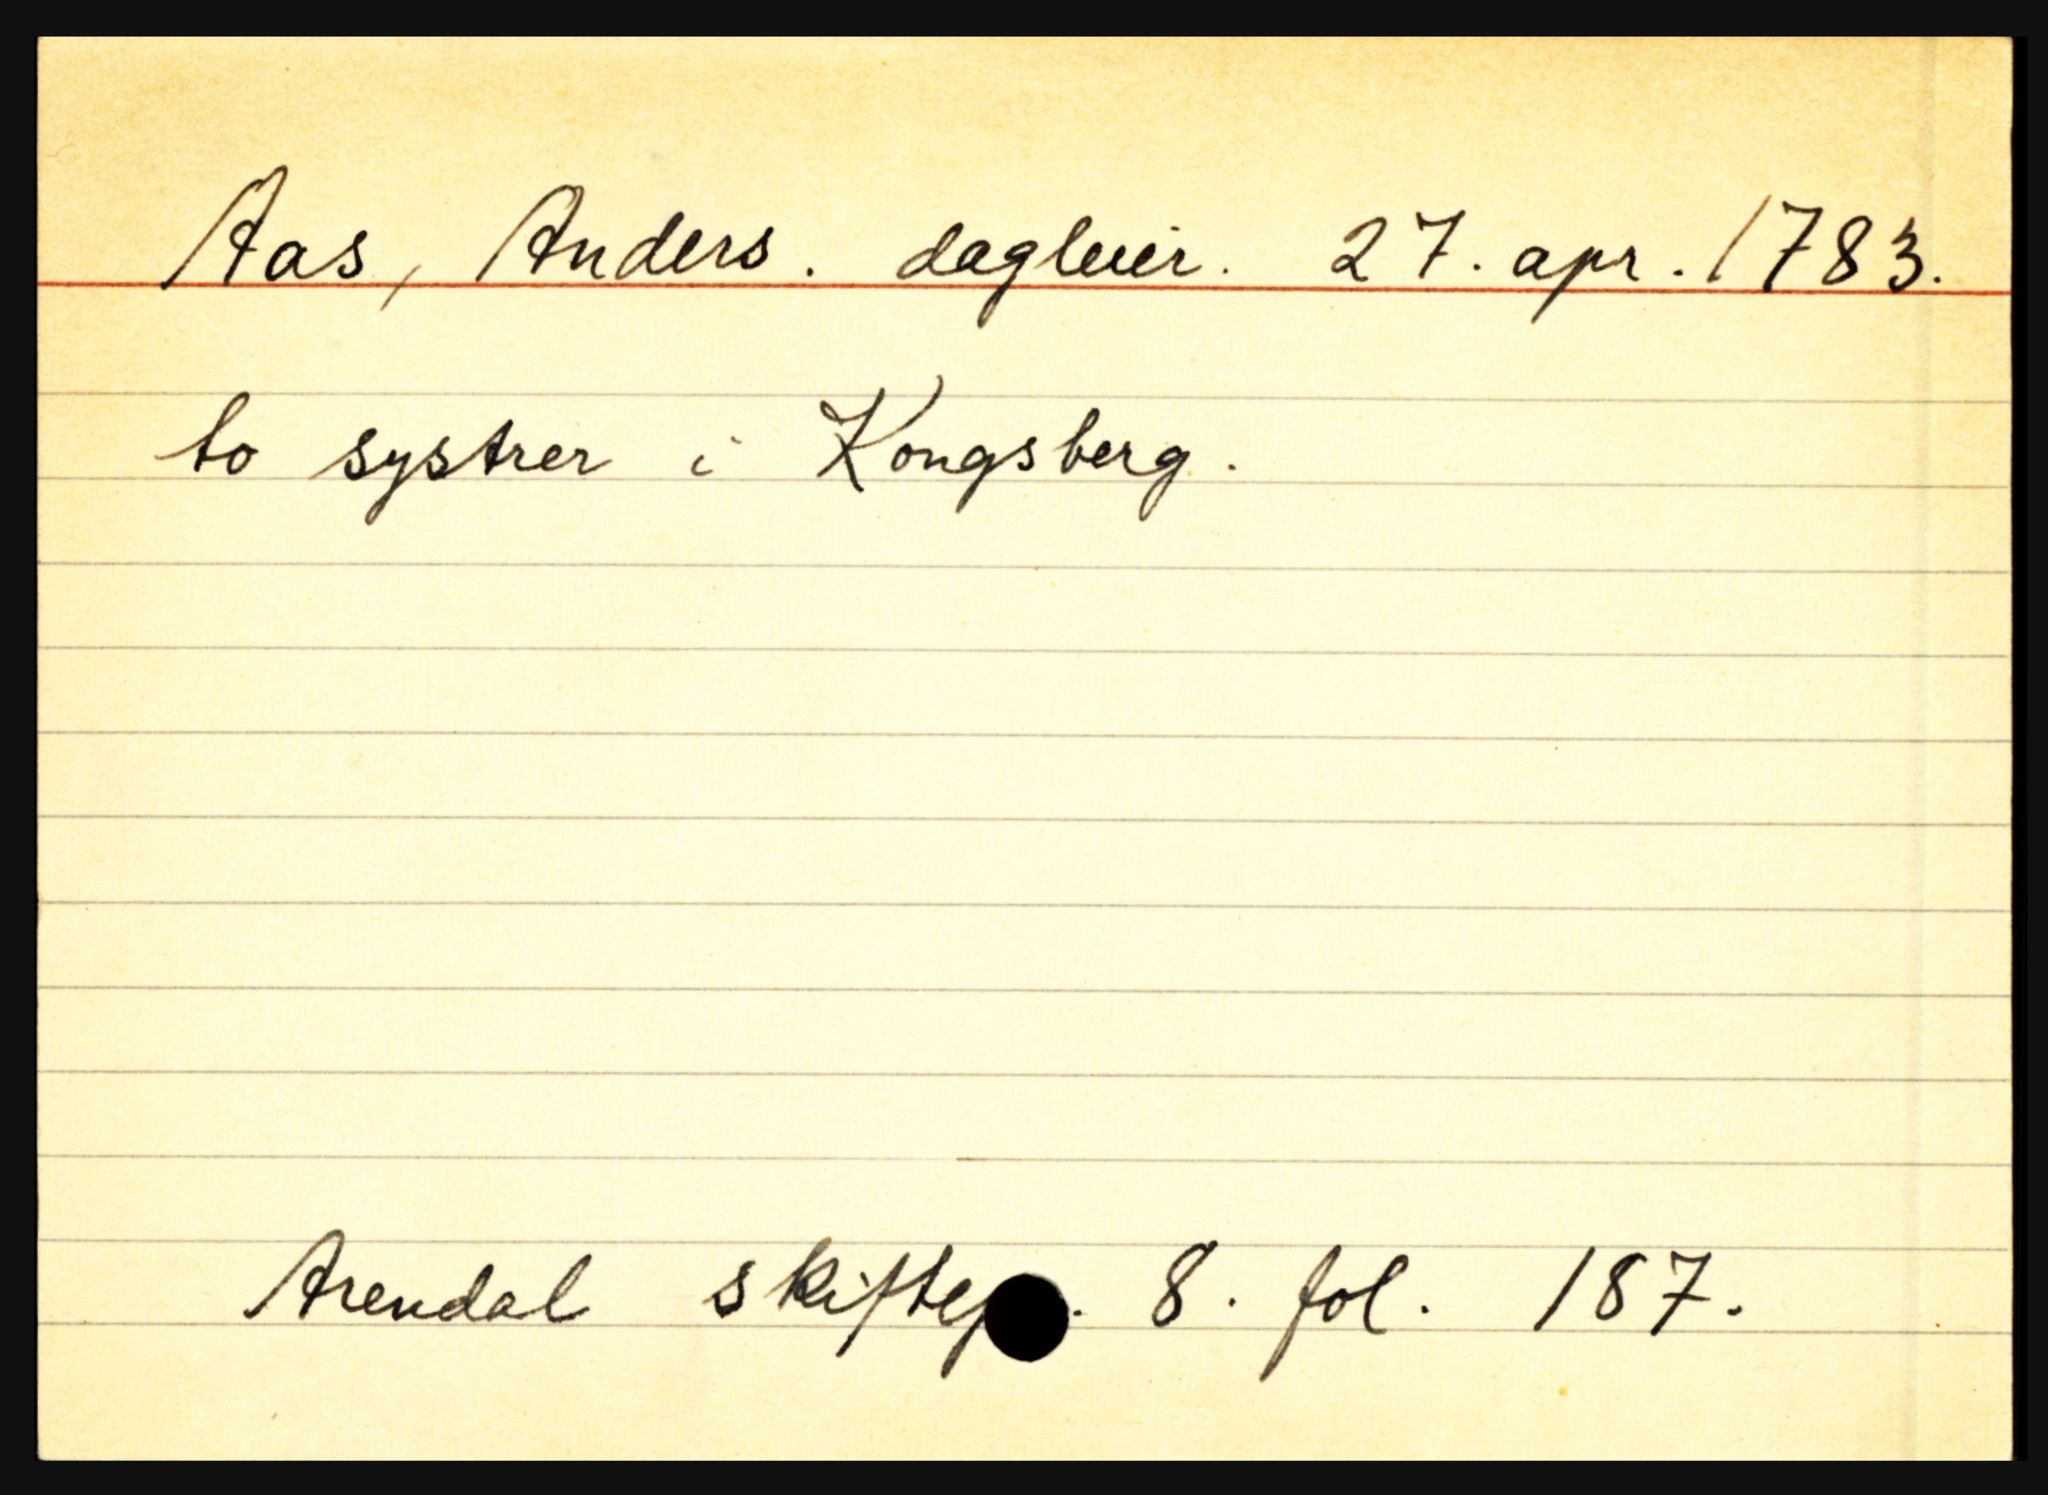 Aas, Anders. dagleier. 27. apr. 1783.
to systrer i Kongsberg.
Arendal 8. fol. 187.